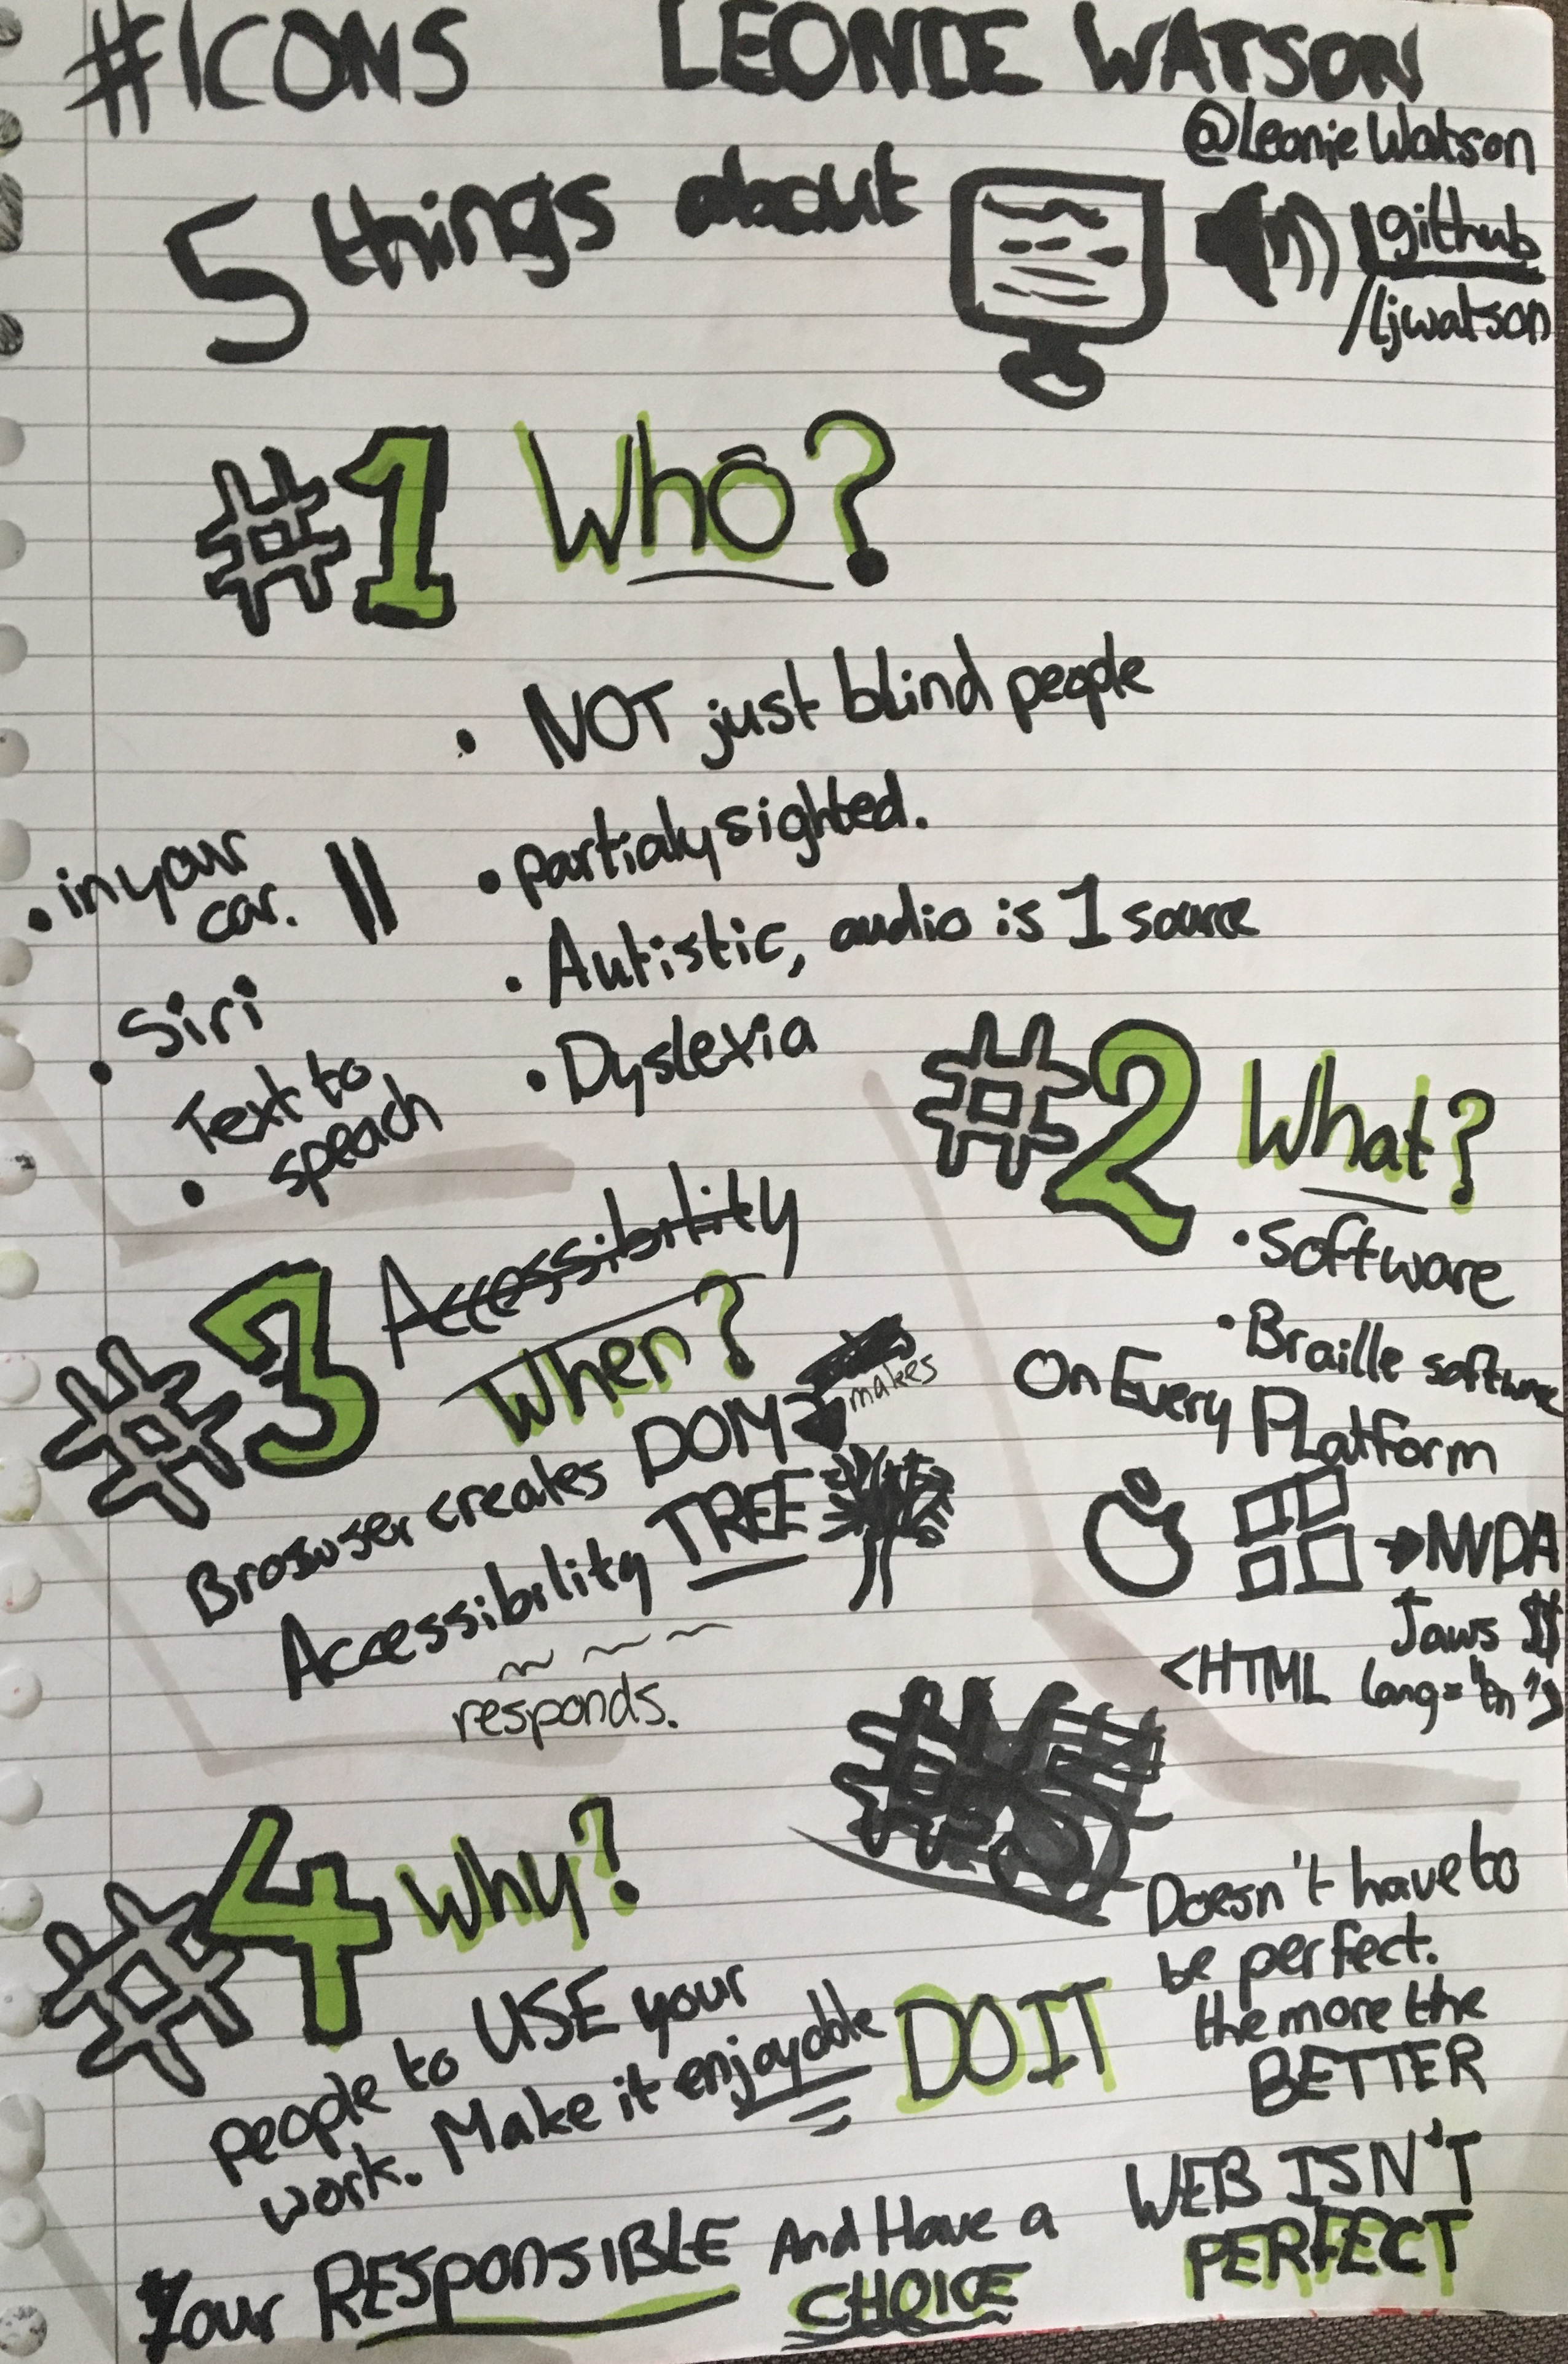 #ICONS
LEONIE WATSON
@LeonieWatson
5 things about
github
/ljwatson
#1 Who?
• NOT just blind people
• partialy sighted.
• Autistic, audio is 1 source
• Dyslexia
• in your
car.
• Siri
• Text to
speach
#2 What?
• Software
• Braille software
On Every PLatform
→NVDA
Jaws $$
<HTML lang="en">
#3 Accessibility
When?
Browser creates DOM
makes
Accessibility TREE
responds.
#4 Why?
people to USE your
work. Make it enjoyable
DO IT
Doesn't have to
be perfect.
the more the
BETTER
WEB ISN'T
PERFECT
Your RESponsIBLE And Have a
CHOICE